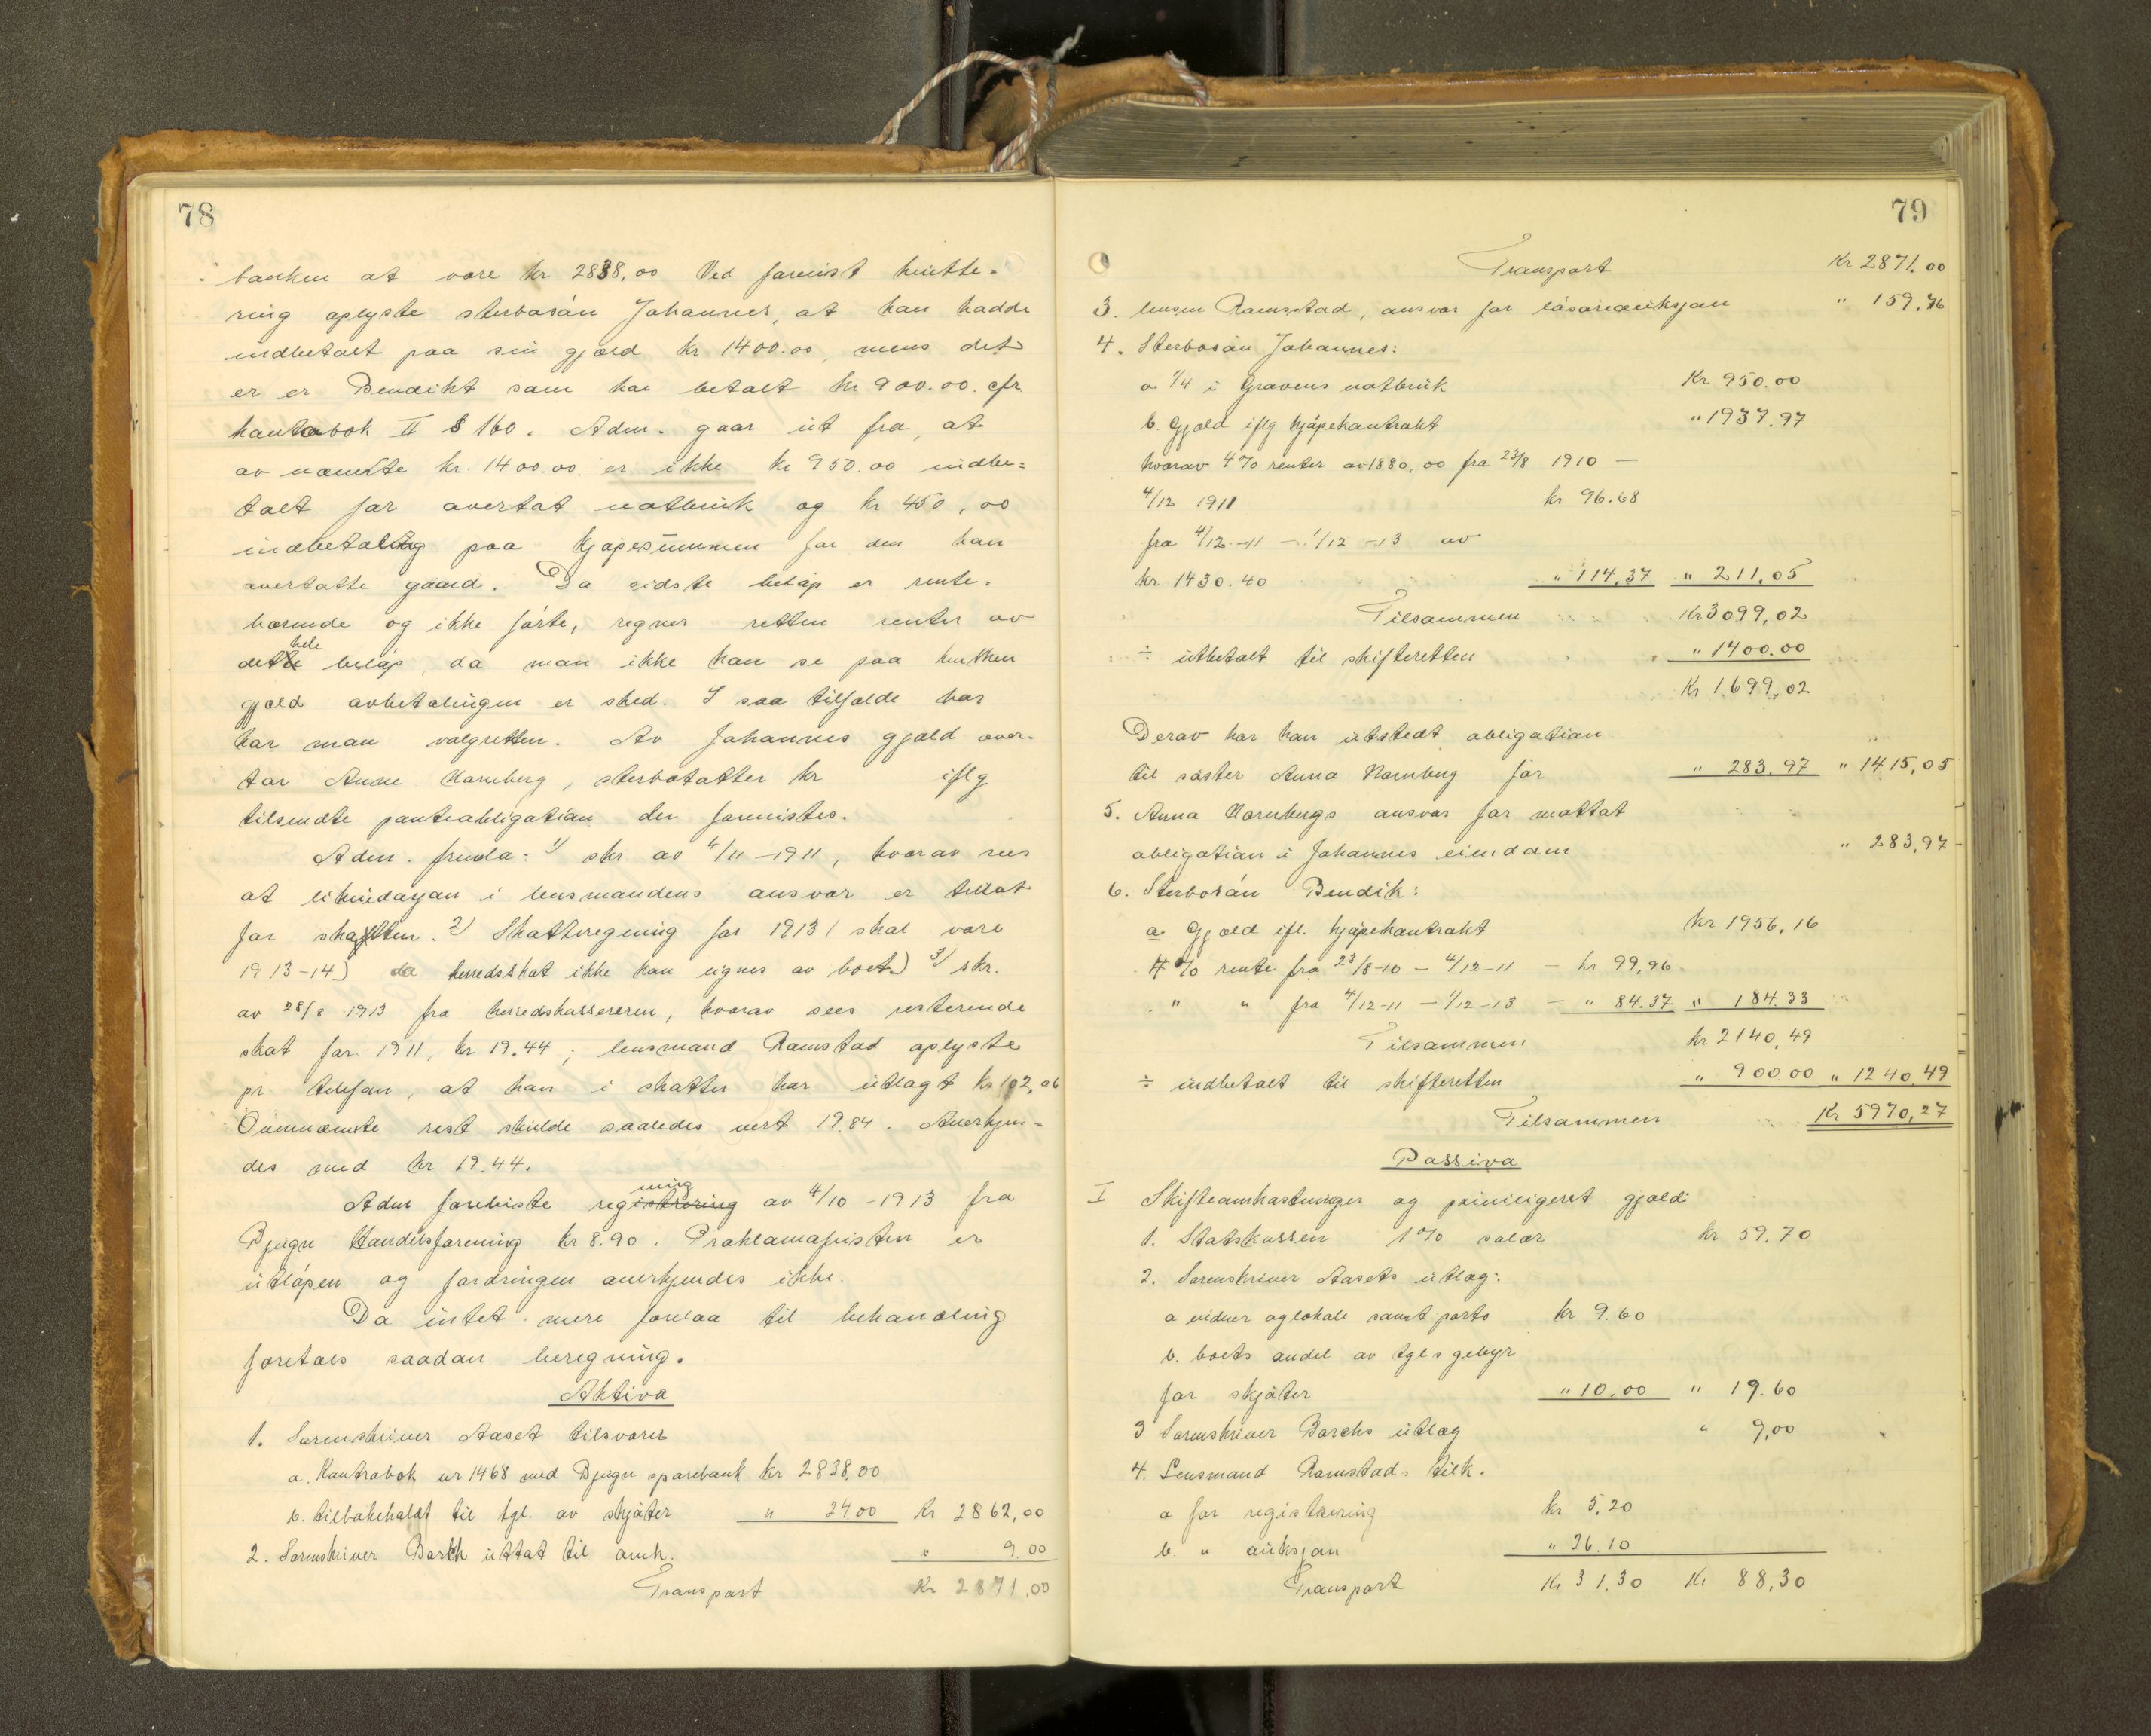 78
banken at være kr 2838,00 Ved forrust hiutte-
ring oplyste sterbosøn Johannes, at han hadde
indbetalt paa sin gjæld kr 1400.00, mens det
er er Bendikt som har betalt kr 900.00. cfr
kontobok II § 160. Adm. gaar ut fra, at
av nævnte kr. 1400.00 er ikke kr 950.00 indbe=
talt for overtat notbruk og kr 450,00
indbetaling paa kjøpesummen for den han
overtatte gaard. Da sidste beløp er rente-
bærende og ikke første, regner retten renter av
dette hele beløp, da man ikke kan se paa hvilken
gjæld avbetalingen er sked. I saa tilfælde har
har man valgretten. Av Johannes gjæld over-
tar Anne Hamberg, sterbodatter kr iflg
tilsendte panteobligation der forevistes.
Adm. fremla: 1) skr av 4/11 -1911, hvorav sees
at likvidasjon i lensmandens ansvar er tillat
for skatten. 2) Skatteregning for 1913 (skal være
1913-14) da herredsskat ikke kan lignes av boet.) 3) skr.
av 28/8 1913 fra herredskassereren, hvorav sees resterende
skat for 1911, kr 19.44; lensmand Ramstad oplyste
pr telefon, at han i skatter har utlagt kr 102,06
Ovennævnte rest skulde saaledes vært 19.84. Anerkjen-
des med kr 19.44.
Adm forelviste registrering ning av 4/10 -1913 fra
Bjugn Handelsforening kr 8.90. Proklamafristen er
utløpen og fordringen anerkjendes ikke.
Da intet mere forelaa til behandling
foretaes saadan beregning.
Aktiva
1. Sorenskriver Aaset tilsvarer
a. Kontrabok nr 1468 med Bjugn sparebank kr 2838,00
b. tilbakeholdt til tgl. av skjøter " 24,00 kr 2862,00
2. Sorenskriver Barth uttat til omk. " 9.00
Transport Kr 2871,00
79
Transport Kr 2871.00
3. lensm Ramstad, ansvar for løsøreauksjon " 159,76
4. Sterbosøn Johannes:
a 1/4 i Gravens notbruk Kr 950.00
b. Gjæld iflg kjøpekontrakt " 1937.97
hvorav 4% renter av 1880,00 fra 23/8 1910 —
4/12 1911 kr 96.68
fra 4/12 -11 — 1/12 -13 av
kr 1430.40 " 114,37 " 211,05
Tilsammen Kr 3099,02
÷ utbetalt til skifteretten " 1400.00
Kr 1.699,02
Derav har han utstedt obligation
til søster Anna Hamberg for " 283,97 " 1415,05
5. Anna Hambergs ansvar for mottat
obligation i Johannes eiendom " 283,97
6. Sterbosøn Bendik:
a Gjæld ifl. kjøpekontrakt Kr 1956,16
4% rente fra 23/8-10 — 4/12-11 — kr 99,96
" " fra 4/12-11 — 1/12-13 — " 84.37 " 184.33
Tilsammen kr 2140,49
÷ indbetalt til skifteretten " 900.00 " 1240,49
Tilsammen Kr 5970,27
Passiva
I Skifteomkostninger og priviligeret gjæld:
1. Statskassen 1% salær kr 59.70
2. Sorenskriver Aasets utlæg:
a vidner og lokale samt porto kr 9.60
b. boets andel av tgl s gebyr
for skjøter " 10.00 " 19.60
3 Sorenskriver Barths utlæg " 9,00
4. Lensmand Ramstads tilk.
a for registrering kr 5,20
b. " auksjon " 26.10
Transport Kr 31.30 Kr 88,30